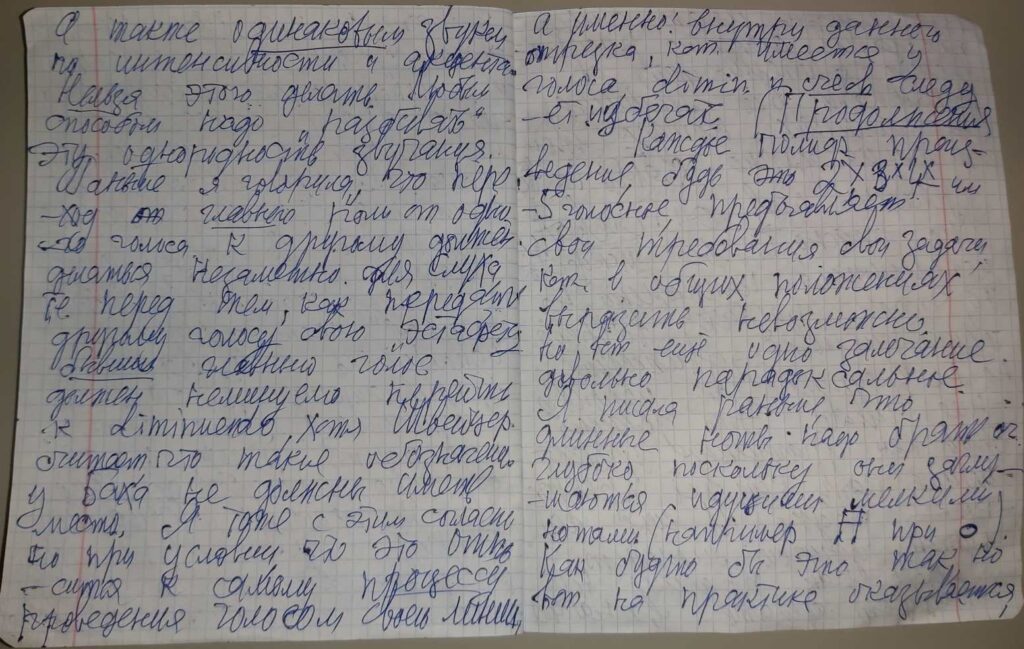 А такте одинаковым звуком
по интенсивности и акцента.
Нельзя этого делать. Любым
способом надо "разбивать"
эту однородность звучания.
Раньше я говорила, что пере
-ход главной роли от одно
-го голоса к другому должен
делаться незаметно для слуха
те перед тем, как передать
другому голосу свою "эстафету
бывший главный голос
должен неминуемо перейти
к diminuendo, хотя Швейцер
считает что такие обозначени
у Баха не должны иметь
места. Я тоже с этим согласна
но при условии, что это отно
-сится к самому процессу
проведения голосом своей линии,
а именно: внутри данного
отрезка, кот. имеется у
голоса dimin и следу
-ет избегать (Продолжения
Каждое полиф. произ-
ведение, будь это 2х 3х 4х или
-5 голосное, предъявляет
свои требования свои задачи,
кот. в общих положениях
выразить невозможно,
но, вот еще одно замечание.
довольно парадоксальное.
Я писала раньше что
длинные ноты надо брать
глубоко поскольку они заглу-
-шаются идущими мелкими
нотами (например при о)
Как будто бы это так, но
вот на практике оказывается,